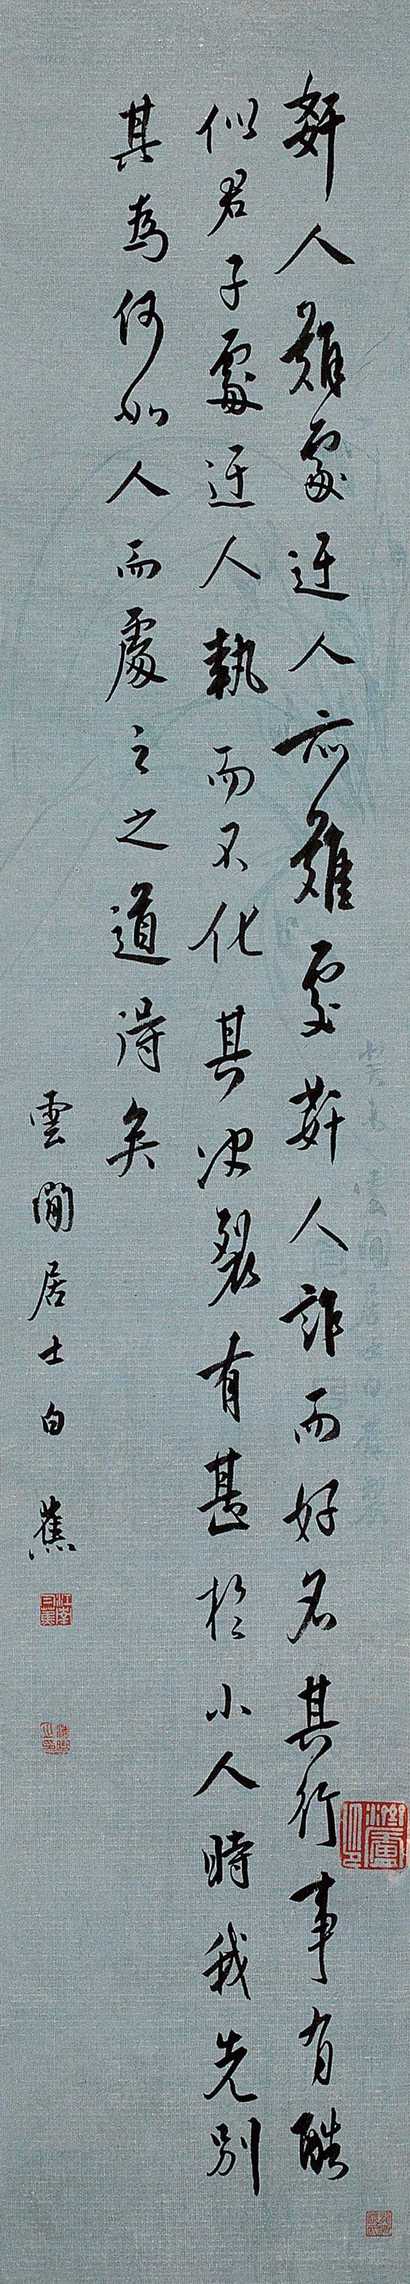 姧人難處迂人亦難處姧人詐而好名其行事有酷
似君子處迂人執而不化其决裂有甚於小人時我先別
其為何如人而處之之道得矣
雲間居士白蕉